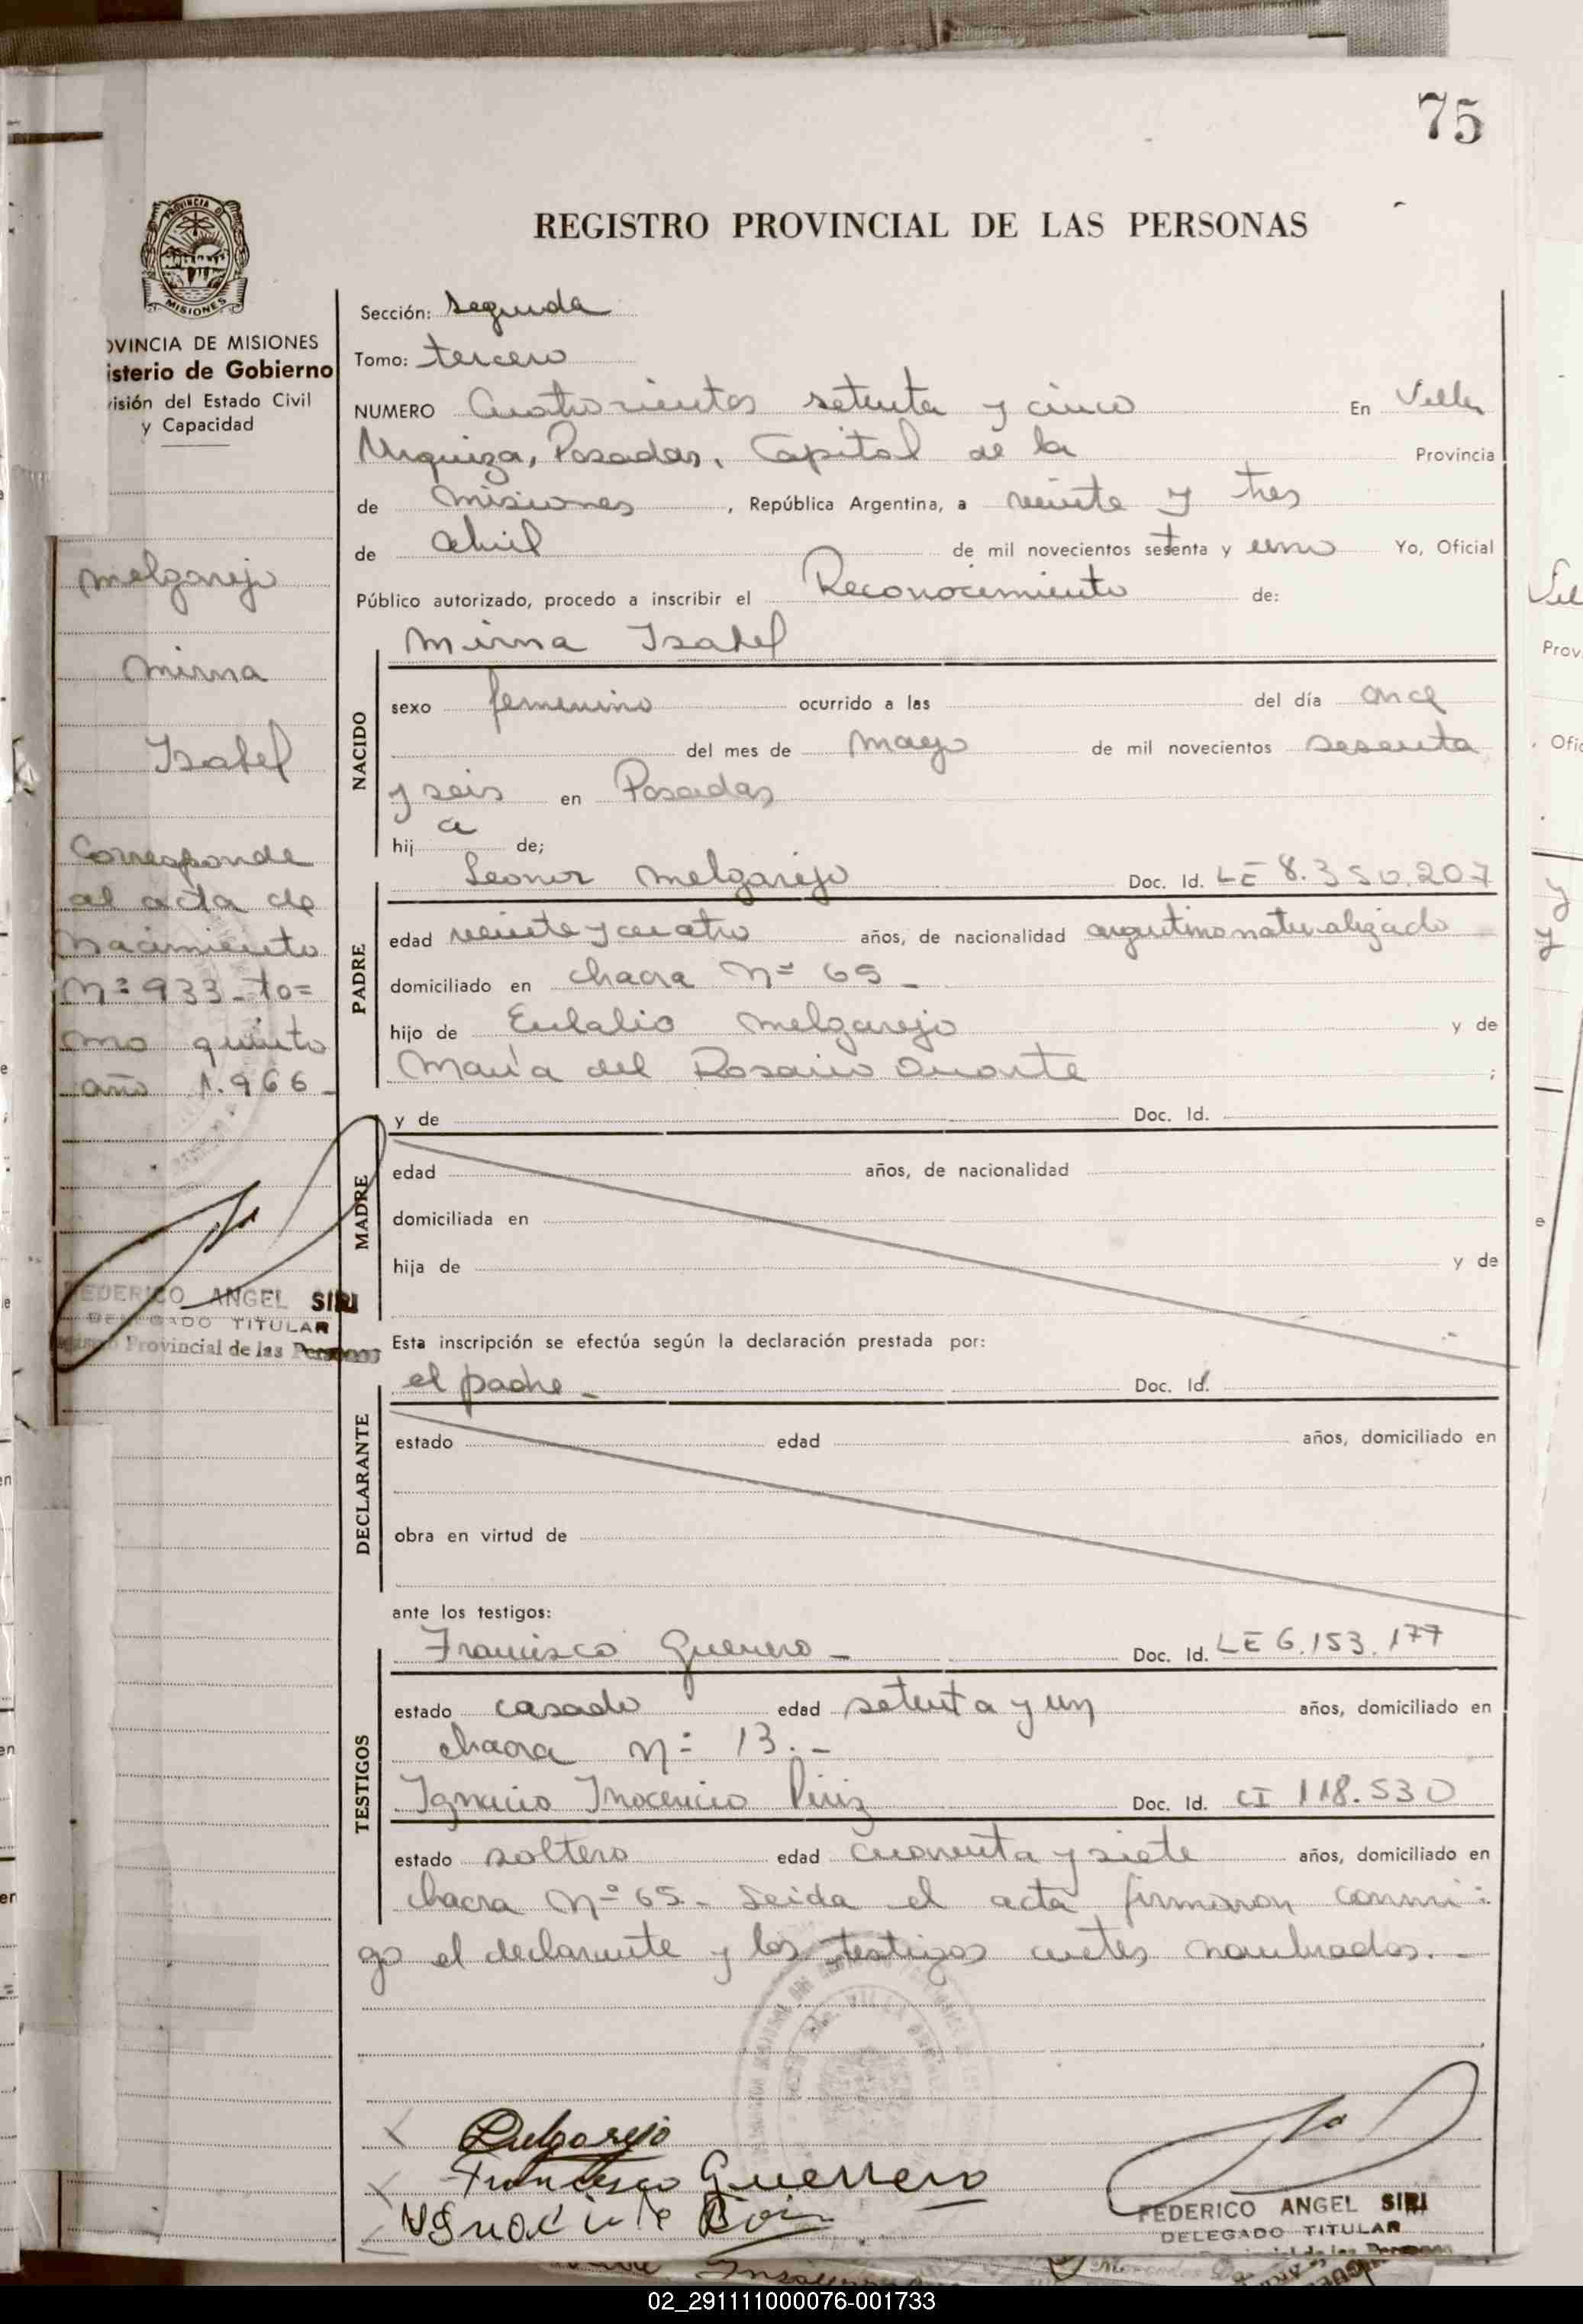 75
PROVINCIA DE
MISIONES
REGISTRO PROVINCIAL DE LAS PERSONAS
OVINCIA DE MISIONES
isterio de Gobierno
visión del Estado Civil
y Capacidad
Melgarejo
Mirna
Isabel
Corresponde
al acta de
nacimiento
Nº 933 - to=
mo quinto
año 1.966 -
FEDERICO ANGEL SIRI
DELEGADO TITULAR
Provincial de las Personas
Sección: segunda
Tomo: tercero
NUMERO Cuatrocientos setenta y cinco En Villa
Urquiza, Posadas, Capital de la Provincia
de Misiones, República Argentina, a veinte y tres
de abril de mil novecientos setenta y uno Yo, Oficial
Público autorizado, procedo a inscribir el Reconocimiento de:
Mirna Isabel
NACIDO
sexo femenino ocurrido a las del día once
del mes de mayo de mil novecientos sesenta
y seis en Posadas
hija de;
Leonor Melgarejo Doc. Id. LE 8.350.207
PADRE
edad veinte y cuatro años, de nacionalidad argentino naturalizado
domiciliado en chacra Nº 65 -
hijo de Eulalio Melgarejo y de
María del Rosario Duarte ;
y de Doc. Id.
MADRE
edad años, de nacionalidad
domiciliada en
hija de y de
Esta inscripción se efectúa según la declaración prestada por:
el padre - Doc. Id.
DECLARANTE
estado edad años, domiciliado en
obra en virtud de
ante los testigos:
Francisco Guerrero - Doc. Id. LE 6.153.177
TESTIGOS
estado casado edad setenta y un años, domiciliado en
chacra Nº 13. -
Ignacio Inocencio Piriz Doc. Id. CI 118.530
estado soltero edad cuarenta y siete años, domiciliado en
chacra Nº 65 - Leida el acta firmaron conmi=
go el declarante y los testigos antes nombrados. -
Melgarejo
Francisco Guerrero
FEDERICO ANGEL SIRI
DELEGADO TITULAR
02_291111000076-001733